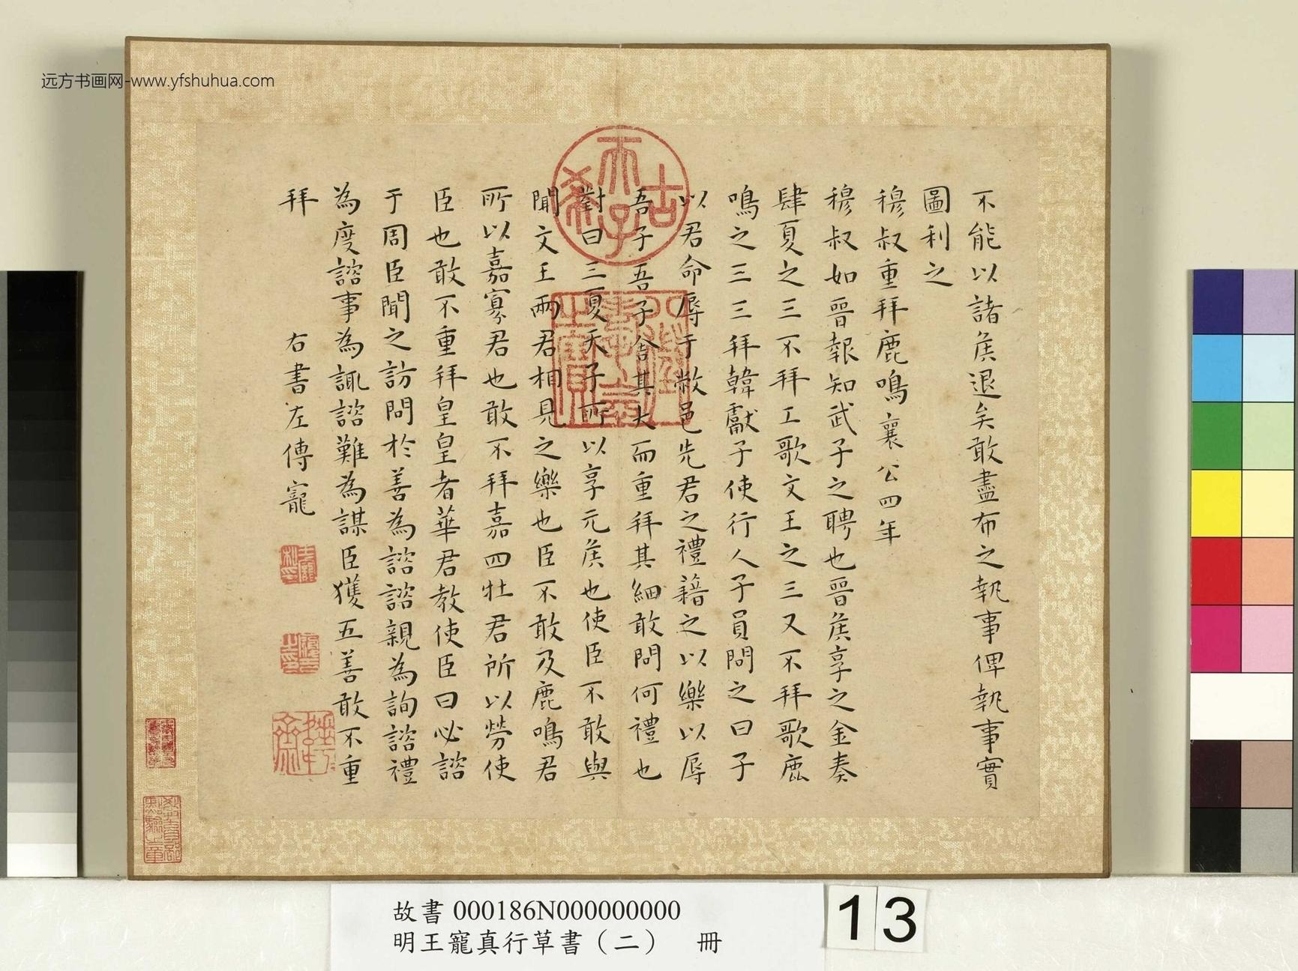 远方书画网-www.yfshuhua.com
不能以諸矦退矣敢盡布之執事俾執事實
圖利之
穆叔重拜鹿鳴襄公四年
穆叔如晉報知武子之聘也晉矦享之金奏
肆夏之三不拜工歌文王之三又不拜歌鹿
鳴之三三拜韓獻子使行人子員問之曰子
以君命辱于敝邑先君之禮藉之以樂以辱
吾子吾子舍其大而重拜其細敢問何禮也
對曰三夏天子所以享元矦也使臣不敢與
聞文王兩君相見之樂也臣不敢及鹿鳴君
所以嘉寡君也敢不拜嘉四牡君所以勞使
臣也敢不重拜皇皇者華君教使臣曰必諮
于周臣聞之訪問於善為諮諮親為詢諮禮
為度諮事為諏諮難為謀臣獲五善敢不重
拜
右書左傳寵
古希天子
故書 000186N000000000
明王寵真行草書（二） 冊
13